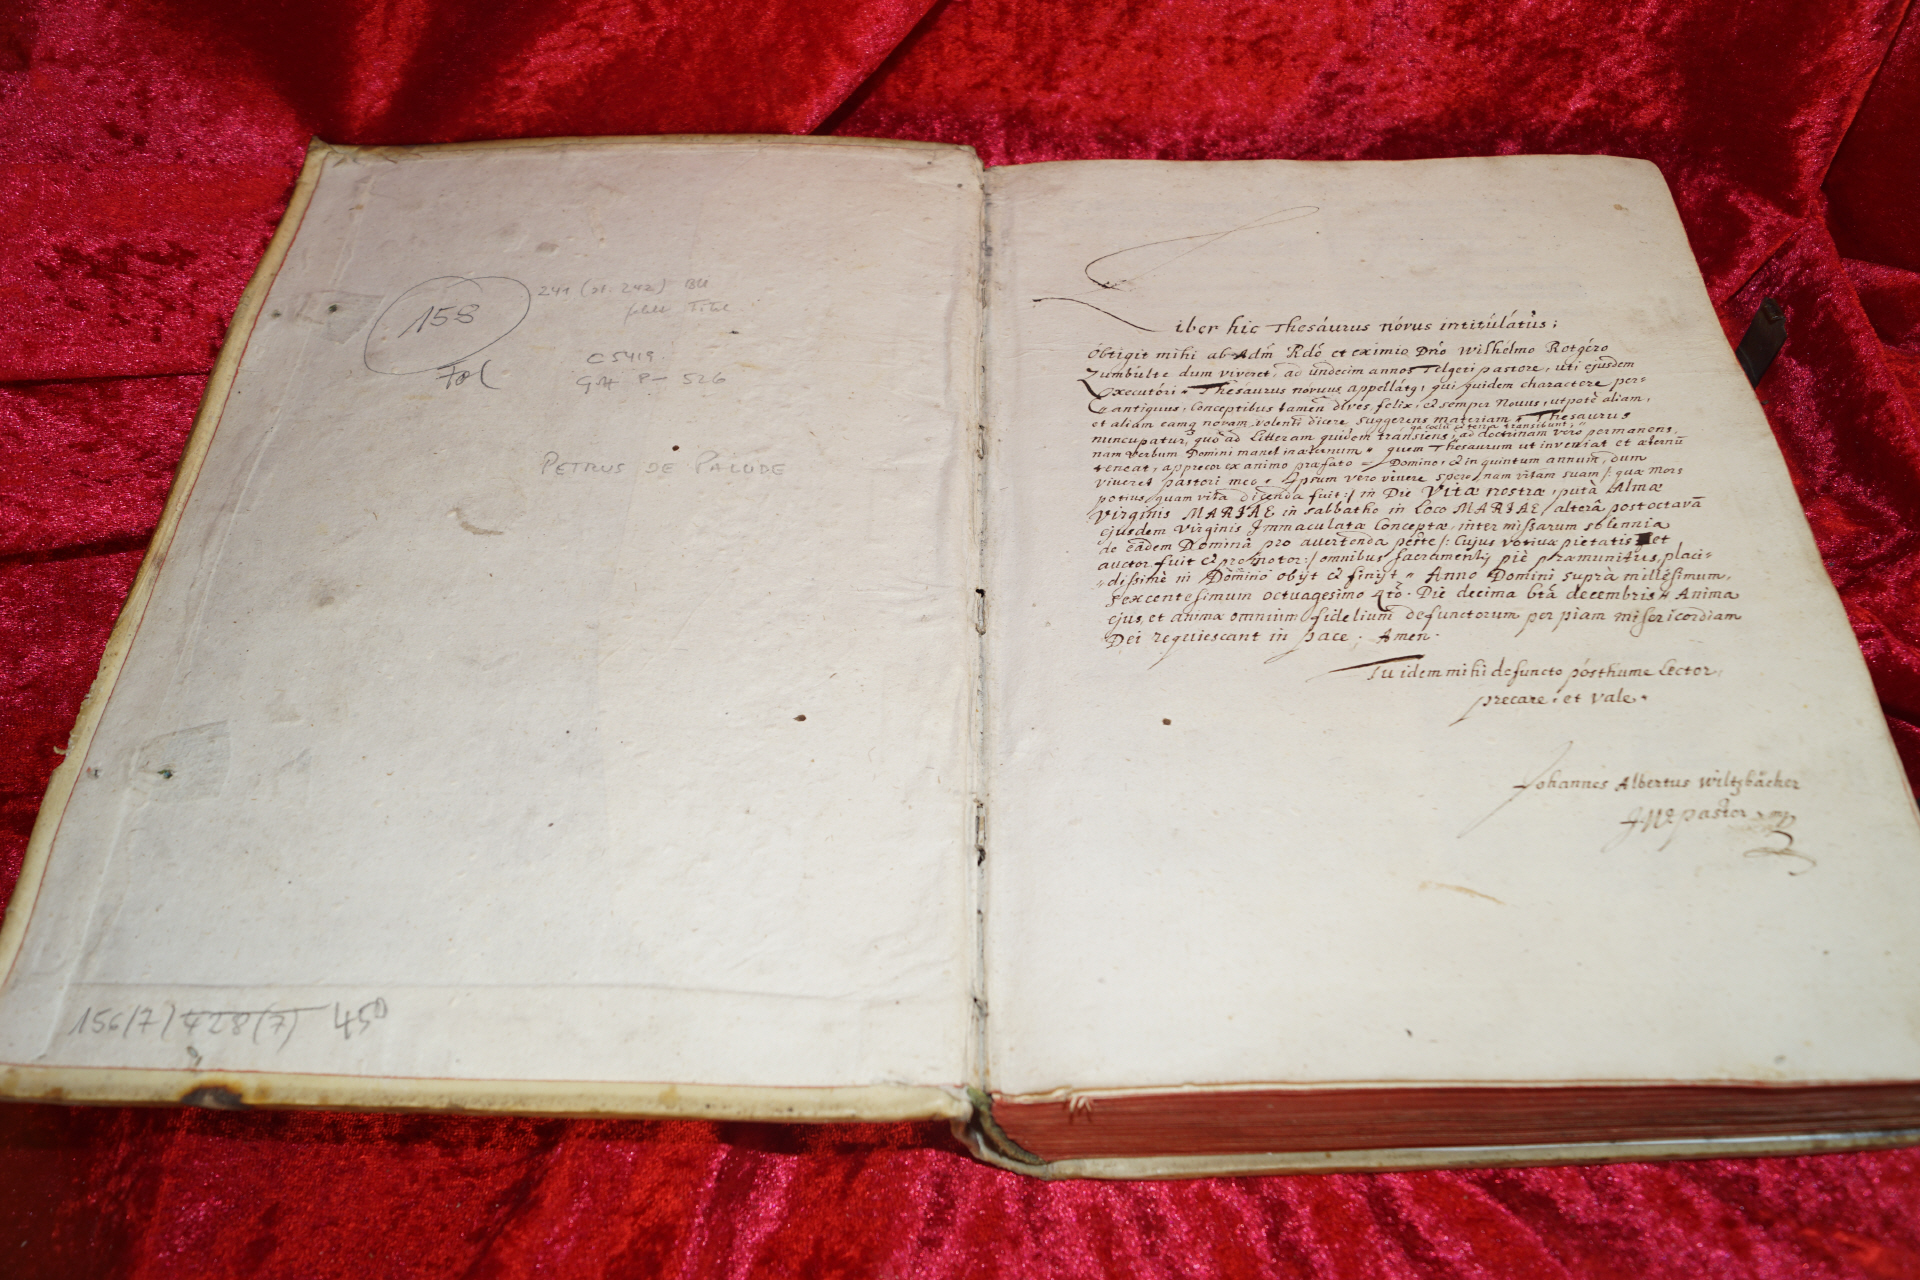 158
Fol
241 (
C 5419.
GW P- 526
PETRUS DE PALUDE
156/7) 428(7) 450
Liber hic Thesáurus nóvus intitúlátús;
Obtigit mihi ab Adm̃ Rdó et eximio Dńo Wilhelmo Rotgéro
Zumbúlte dum viveret, ad úndecim annos Telgeti pastore, uti ejúsdem
Executóri. Thesaurus novuus appellátq; qui quidem charactere per=
antiquus, Conceptibus tamen dives, felix, & semper Nouus, utpotè aliam,
et aliam eamq novam volenti dicere, suggerens materiam. Thesaurus
qa coelu et terra transibunt;
nuncupatur, quò ad Litteram quidem transiens, ad doctrinam verò permanens,
nam verbum Domini manet in æternum. quem Thesaurum ut inveniat et æternũ
teneat, apprecor ex animo præfato Domino, & in quintum annum, dum
viveret pastori meo. Ipsum vero vivere spero, nam vitam suam /: quæ mors
potius, quam vita dicenda fuit :/ in Die Vitæ nostræ, putà Almæ
Virginis MARIAE in sabbatho in Loco MARIAE, alterâ post octavã
ejusdem Virginis Immaculatæ Conceptæ, inter missarum solennia
de eâdem Dominâ pro avertenda peste /: Cujus votivæ pietatis et
auctor fuit & promotor :/ omnibus sacramentis piè præmunitus, placi=
=dissimè in Domino obijt & finijt. Anno Domini suprà millesimum,
sexcentesimum octuagesimo 4tõ. Die decima 6tâ decembris. Anima
ejus, et animæ omnium fidelium defunctorum per piam misericordiam
Dei requiescant in pace. Amen.
Tu idem mihi defuncto pósthume Lector,
precare, et vale.
Johannes Albertus Wiltsbächer
pastor